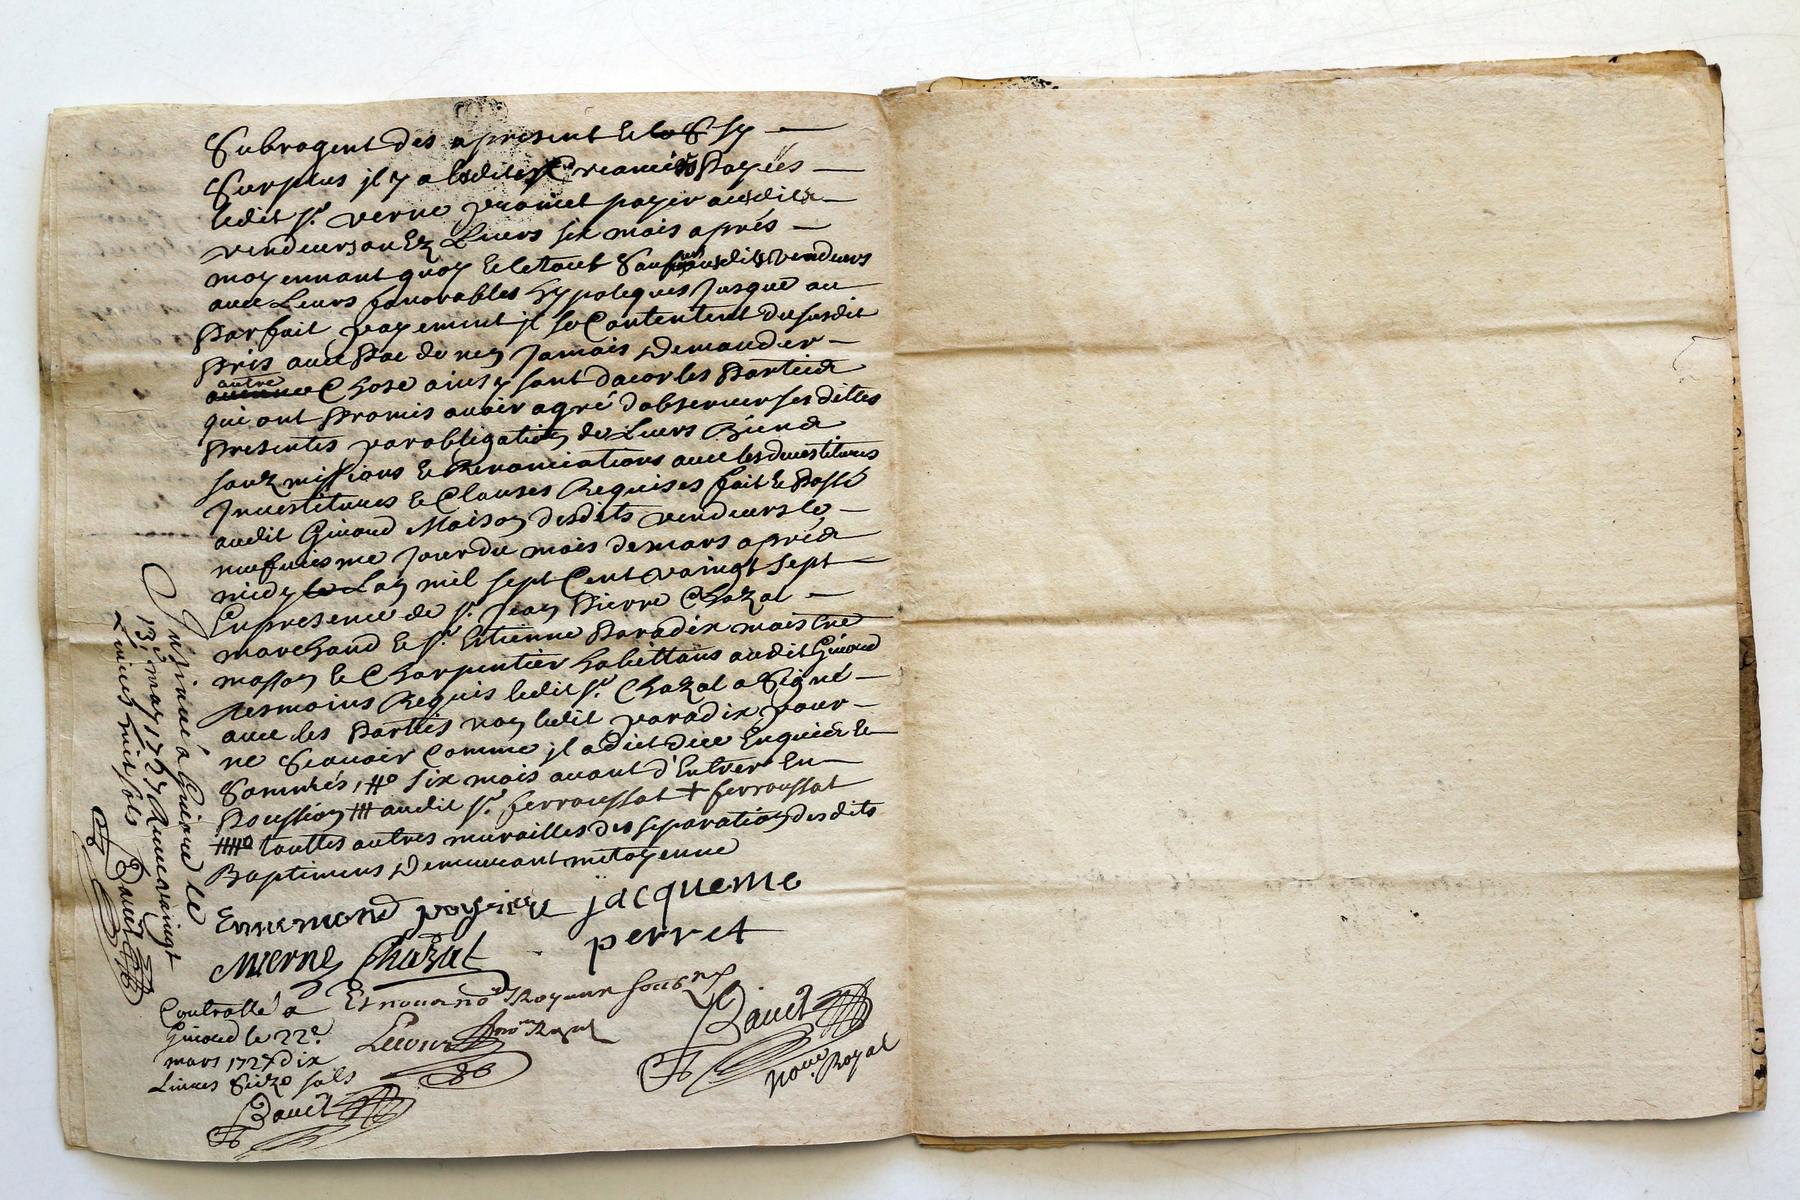 Subrogent des a present & le S sy
Surplus jl y a lesdites Creances Payées
ledit sr. verne promet payer ausdits
vendeurs ou Ez Leurs six mois aprés
moyennant quoy & le tout Sauf ausdits vendeurs
avec Leurs favorables hypoteques Jusque au
Parfait payement jl se Contentent du susdit
Pris avec Pac de ney Jamais Demander
autre
Chose ainsy sont dacor les Parties
qui ont Promis avoir agré d'observer ses dittes
Presentes par obligation de Leurs Biens
soubz missions & Renonciations avec les devestitures
Jnvestitures & Clauses Requises fait & Passé
audit Guioud Maison desdits vendeurs le
neufuiesme jour du mois de mars aprés
midy Lan mil sept Cent vaingt sept
En presence de sr. Jean Pierre Chazal
marchand & sr. Etienne Paradix maistre
masson & Charpentier habittans audit Guioud
tesmoins Requis ledit sr. Chazal a Signé
avec les Parties non ledit paradix pour
ne Scavoir Comme jl a dict dice Enquiei &
Sommés, six mois avant d'Entrer En
Poussion audit sr. ferroussat + ferroussat
touttes autres murailles de separation desdits
Baptimens Demeurant mitoyenne
Ennemond jacqueme
Mverne Chazal perret
Et nous nore. Royaux soubnés
Bauet
nore. Royal
Contrallé a
Guioud le 22e.
mars 1727 dix
Livres Seize sols
Bauet
Jnsinué a Guioud le
13e. may 1727 Receu vaingt
Livres huit sols
Bauet